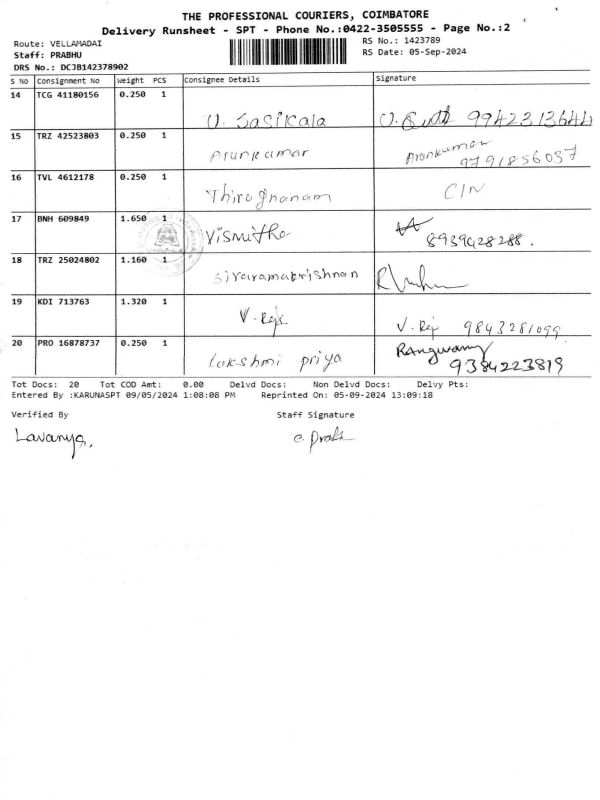 THE PROFESSIONAL COURIERS, COIMBATORE
Delivery Runsheet - SPT - Phone No.:0422-3505555 - Page No.:2
Route: VELLAMADAI RS No.: 1423789
Staff: PRABHU RS Date: 05-Sep-2024
DRS No.: DCJB142378902
S No Consignment No Weight PCS Consignee Details Signature
14 TCG 41180156 0.250 1 U. Sasikala 9942313644
15 TRZ 42523803 0.250 1 Arunkumar Arunkumar
9791856057
16 TVL 4612178 0.250 1 Thirugnanam
17 BNH 609849 1.650 1 Vismitha 8939428288.
18 TRZ 25024802 1.160 1 sivaramakrishnan
19 KDI 713763 1.320 1 V. Raja V. Raja 9843281099
20 PRO 16878737 0.250 1 Lakshmi priya Rangwamy
9384223819
Tot Docs: 20 Tot COD Amt: 0.00 Delvd Docs: Non Delvd Docs: Delvy Pts:
Entered By :KARUNASPT 09/05/2024 1:08:08 PM Reprinted On: 05-09-2024 13:09:18
Verified By Staff Signature
Lavanya,